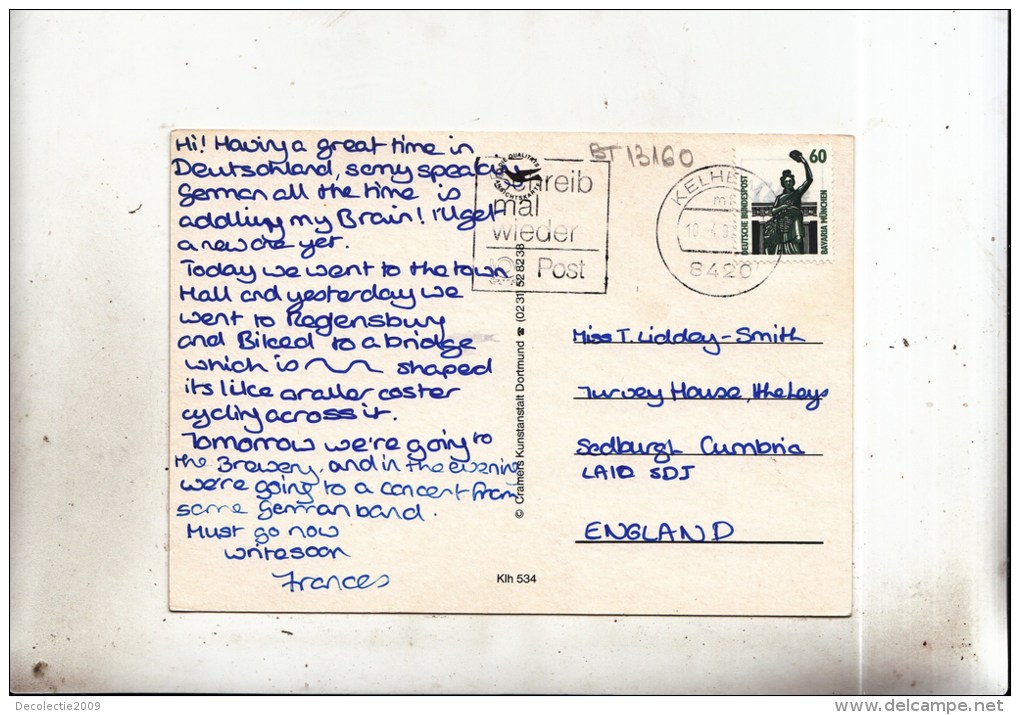 Hi! Having a great time in
Deutschland, sorry speaking
German all the time is
addling my Brain! I'll get
a new one yet.
Today we went to the town
Hall and yesterday we
went to Regensburg
and Biked to a bridge
which is shaped
its like a roller coster
cycling across it.
Tomorrow we're going to
the Brewery, and in the evening
we're going to a concert from
some German band.
Must go now
write soon
Frances
© Cramers Kunstanstalt Dortmund ☎ (0231) 528238
Klh 534
BT 13160
Schreib
mal
wieder
Post
KELHEIM
8420
60
DEUTSCHE BUNDESPOST
BAVARIA MÜNCHEN
Miss T. Liddey-Smith
Turvey House, the Leys
Sedburgh Cumbria
LA10 5DJ
ENGLAND
Decolectie2009
www.delcampe.net